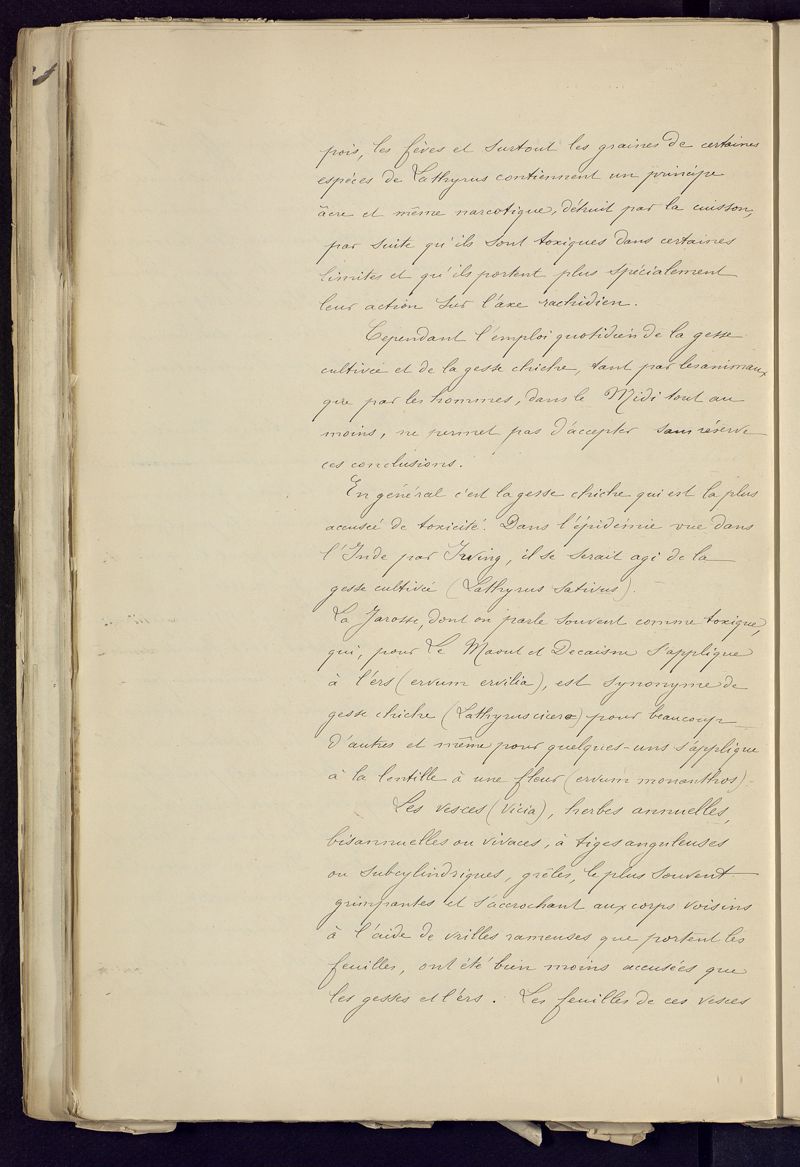 pois, les fèves et surtout les graines de certaines
espèces de Lathyrus contiennent un principe
âcre et même narcotique, détruit par la cuisson,
par suite qu'ils sont toxiques dans certaines
limites et qu'ils portent plus spécialement
leur action sur l'axe rachidien.
Cependant l'emploi quotidien de la gesse
cultivée et de la gesse chiche, tant par les animaux
que par les hommes, dans le Midi tout au
moins, ne permet pas d'accepter sans réserve
ces conclusions.
En général c'est la gesse chiche qui est la plus
accusée de toxicité. Dans l'épidémie vue dans
l'Inde par Irving, il se serait agi de la
gesse cultivée (Lathyrus Sativus).
La Jarosse, dont on parle souvent comme toxique,
qui, pour Le Maout et Decaisne s'applique
à l'ers (ervum ervilia), est synonyme de
gesse chiche (Lathyrus cicera) pour beaucoup
d'autres et même pour quelques-uns s'applique
à la lentille à une fleur (ervum monanthos).
Les vesces (Vicia), herbes annuelles,
bisannuelles ou vivaces, à tiges anguleuses
ou subcylindriques, grêles, le plus souvent
grimpantes et s'accrochant aux corps voisins
à l'aide de vrilles rameuses que portent les
feuilles, ont été bien moins accusées que
les gesses et l'ers. Les feuilles de ces vesces